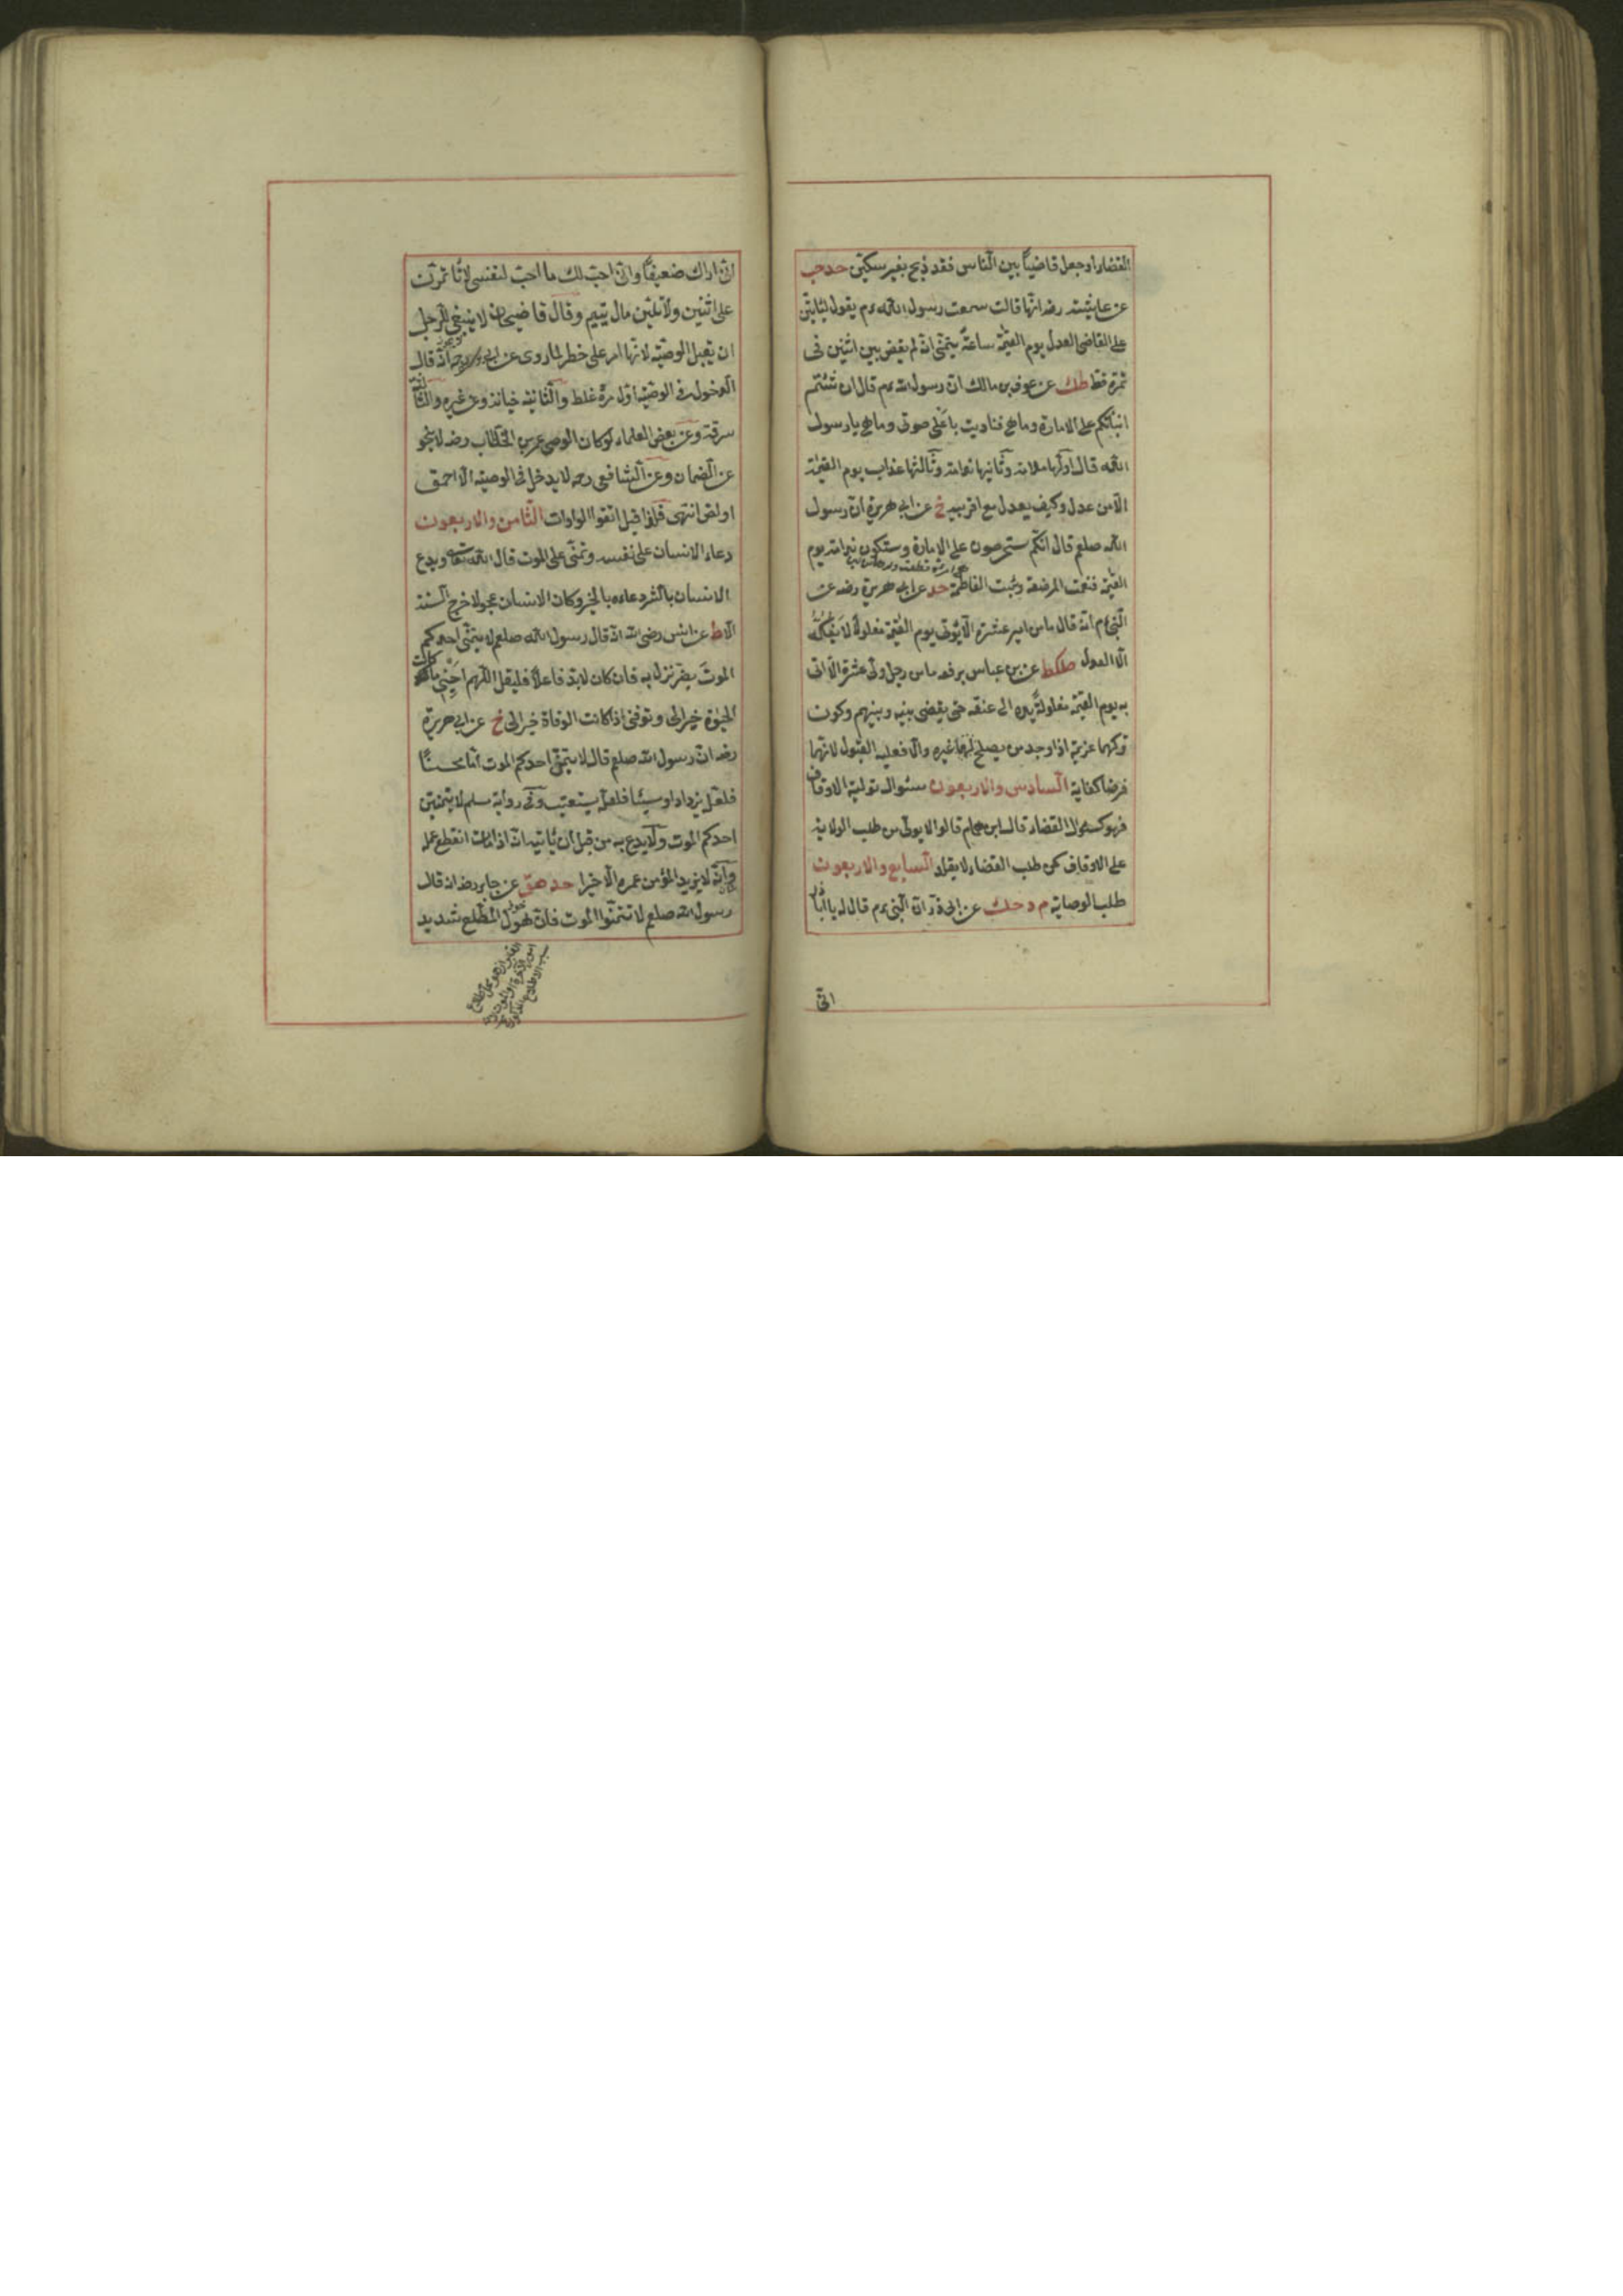 القضاء او جعل قاضيًا بين النّاس فقد ذبح بغير سكّين حد حب
عن عايشة رضه انّها قالت سمعت رسول اللّه ءم يقول ليأتينّ
على القاضى العدل يوم القيمة ساعةً يتمنّى انّه لم يقض بين اثنين فى
تمرة قط طك عن عوف بن مالك انّ رسول اللّه ءم قال ان شئتم
انبأتكم على الامارة وما هى فناديت باعلى صوتى وما هى يا رسول
اللّه قال اوّلها ملامة وثانيها ندامة وثالثها عذاب يوم القيمة
الّا من عدل وكيف يعدل مع اقربيه خ عن ابى هريرة انّ رسول
اللّه صلعم قال انّكم ستحرصون على الامارة وستكون ندامة يوم
القيمة فنعمت المرضعة وبئست الفاطمة حد عن ابى هريرة رضه عن
النّبى ءم انّه قال ما من امير عشرة الّا يؤتى يوم القيمة مغلولة لا يفكّه
الّا العدل طكط عن بن عباس يرفعه ما من رجل ولى عشرة الّا اتى
به يوم القيمة مغلولةً يده الى عنقه حتى يقضى بينه وبينهم وكون
تركهما عزيمة اذا وجد من يصلح لهما غيره والّا فعليه القبول لانّهما
فرضا كفاية السّادس والاربعون سئوال تولية الاوقاف
فهو كسئوال القضاء قال ابن همام قالوا لا يولّى من طلب الولاية
على الاوقاف كمن طلب القضاء لا يقلد السّابع والاربعون
طلب الوصاية م د حك عن ابى ذرّ انّ النّبى ءم قال له يا اباذر
انّى
انّى اراك ضعيفًا وانّى احبّ لك ما احبّ لنفسى لا تأمّرنّ
على اثنين ولا تلينّ مال يتيم وقال قاضيخان لا ينبغى للرّجل
ان يقبل الوصيّة لانّها امر على خطر لما روى عن ابى يوسف رحه انّه قال
الدّخول فى الوصيّة اوّل مرّة غلط والثّانية خيانة وعن غيره والثّالثة
سرقة وعن بعض العلماء لو كان الوصى عمر بن الخطّاب رضه لا ينجو
عن الضّمان وعن الشّافعى رحه لا يدخل فى الوصيّة الّا احمق
او لص انتهى فلذا قيل اتّقوا الواوات الثّامن والاربعون
دعاء الانسان على نفسه وتمنّى على الموت قال اللّه تعا ويدع
الانسان بالشّر دعاءه بالخير وكان الانسان عجولا خرج السّتّة
الّا ط عن انس رضى اللّه انّه قال رسول اللّه صلعم لا يتمنّى احدكم
الموت بضرّ نزل به فان كان لابدّ فاعلًا فليقل اللّهم احينى ما كانت
الحيوة خيرا لى وتوفّنى اذا كانت الوفاة خيرا لى خ عن ابى هريرة
رضه انّ رسول اللّه صلعم قال لا يتمنّى احدكم الموت امّا محسنًا
فلعلّ يزداد او مسيئا فلعلّ يستعتب وفى رواية مسلم لا يتمنّين
احدكم الموت ولا يدع به من قبل ان يأتيه انّه اذا مات انقطع عمله
وانّه لا يزيد المؤمن عمره الّا خيرا حد هق عن جابر رضه انّه قال
رسول اللّه صلعم لا تتمنّوا الموت فانّ هول المطّلع شديد